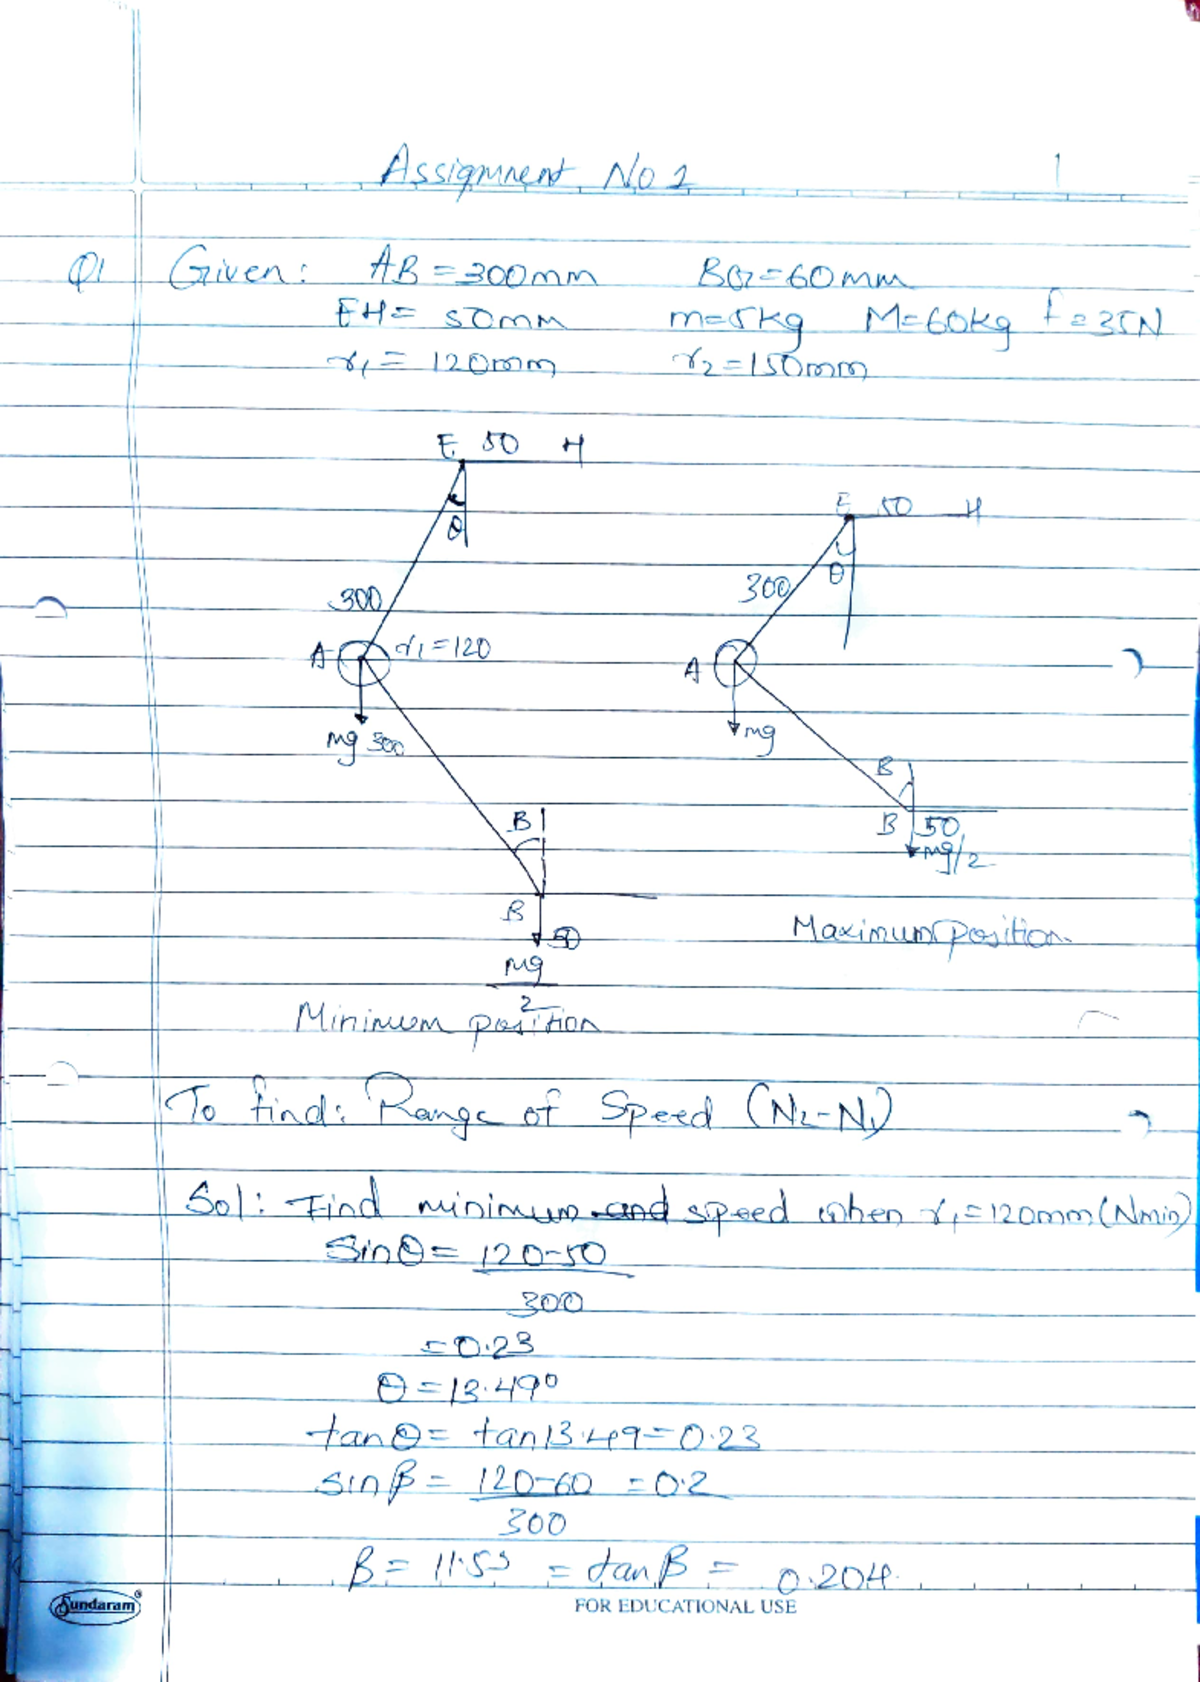 Assignment No 1
1
Q1 Given: AB = 300mm BG = 60mm
EH = 50mm m = 5kg M = 60kg f = 35N
r₁ = 120mm r₂ = 150mm
E 50 H
θ
300
A r₁ = 120
mg 300
B
B
50
Mg
2
Minimum position
E 50 H
θ
300
A
mg
B
B 50
Mg/2
Maximum position
To find: Range of Speed (N₂-N₁)
Sol: Find minimum and speed when r₁ = 120mm (Nmin)
Sinθ = 120-50
300
= 0.23
θ = 13.49°
tanθ = tan 13.49 = 0.23
sin β = 120-60 = 0.2
300
β = 11.53 = tan β = 0.204
Sundaram
FOR EDUCATIONAL USE